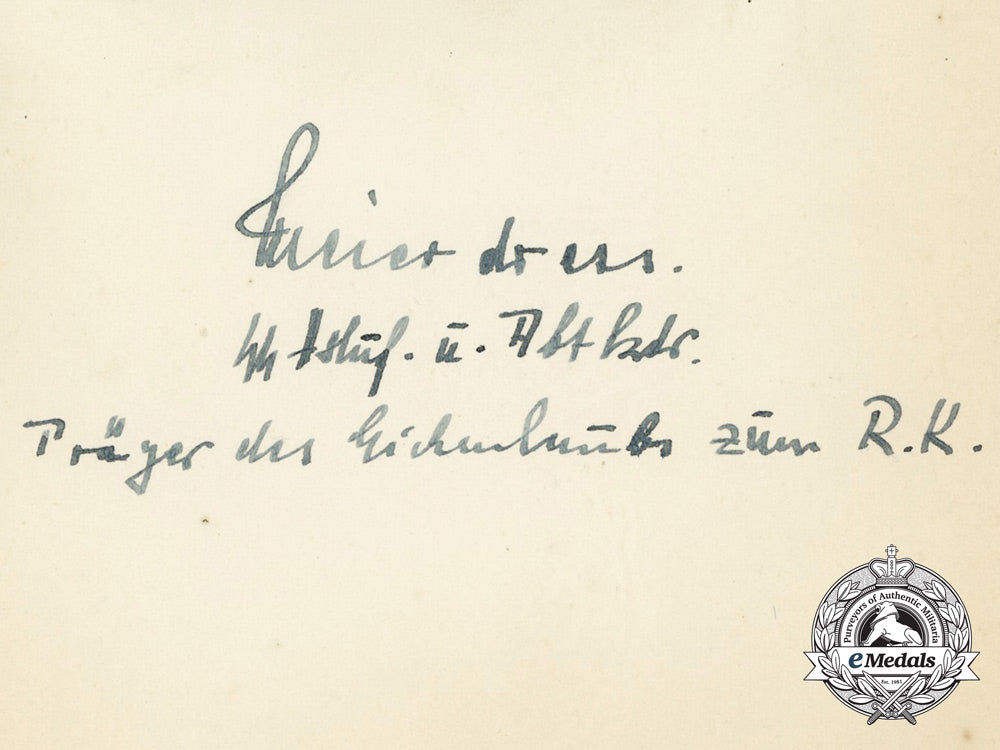 Meierdress.
SS Hstuf. u. Abt kdr.
Träger des Eichenlaubs zum R.K.
Purveyors of Authentic Militaria
eMedals
Est. 1981